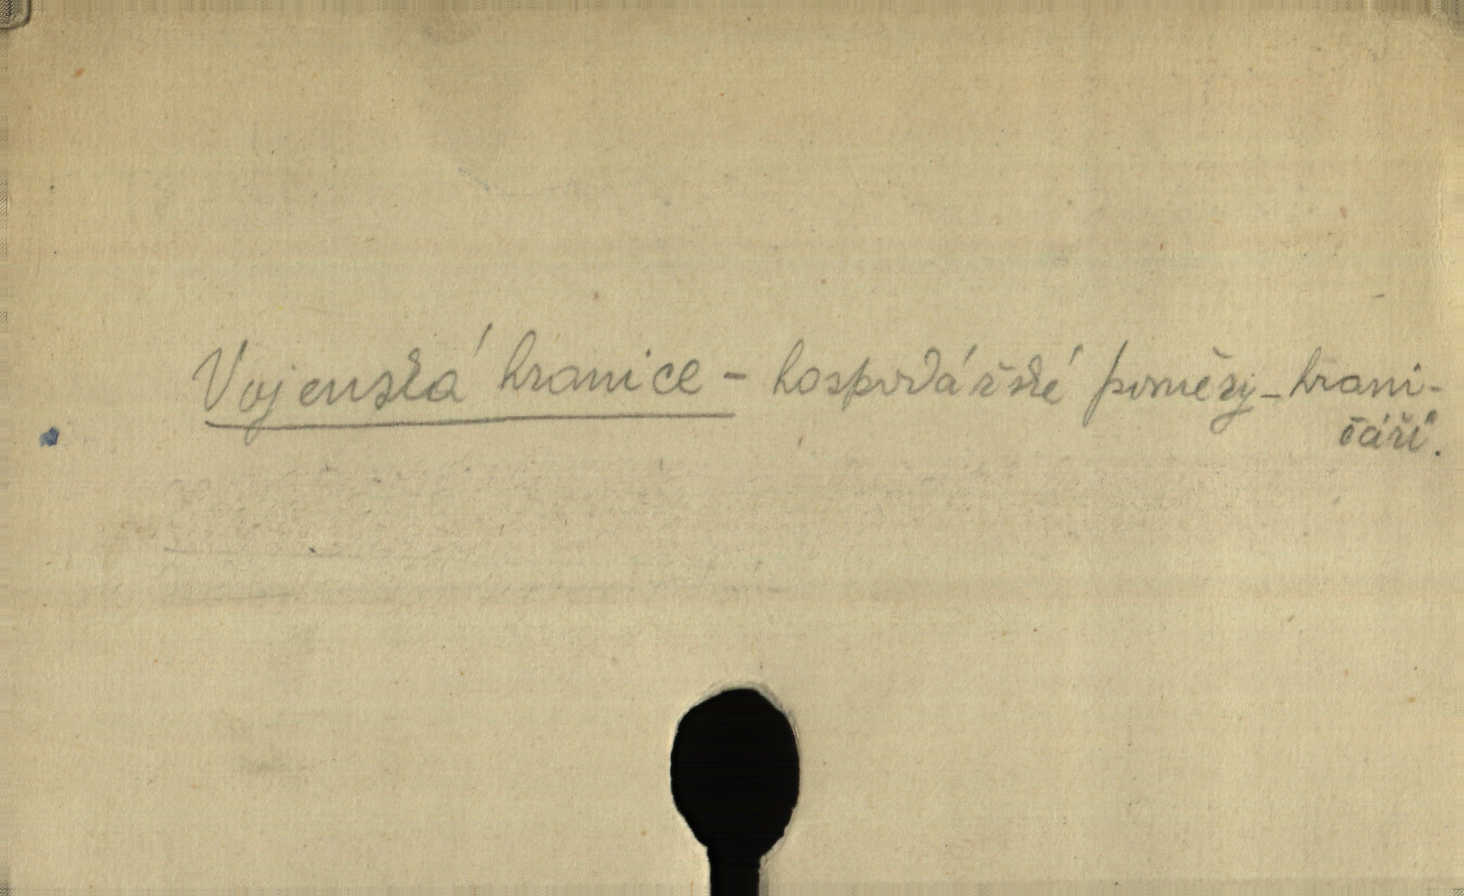 Vojenská hranice - hospodářské poměry - hrani-
čářů.